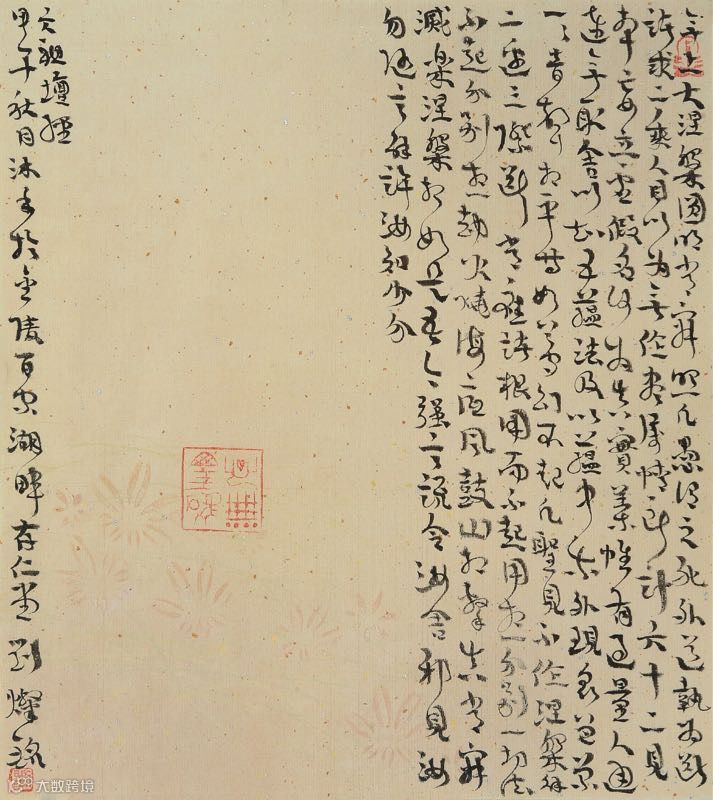 无上大涅槃圓明常寂照凡愚謂之死外道執為斷
諸求二乘人目以為無作盡屬情所計六十二見
本妄立虛假名何為真實義惟有過量人通
達無取舍以知五蘊法及以蘊中我外現眾色象
一一音聲相平等如夢幻不起凡聖見不作涅槃解
二邊三際斷常應諸根用而不起用想分別一切法
不起分別想劫火燒海底風鼓山相擊真常寂
滅樂涅槃相如是吾今強言說令汝舍邪見汝
勿隨言解許汝知少分
六祖壇經
甲午秋月沐手於金陵百家湖畔存仁堂劉燦銘
大数跨境